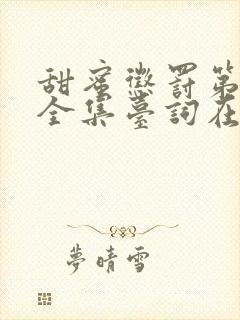 甜蜜懲罰第
全集臺詞在
夢晴雪